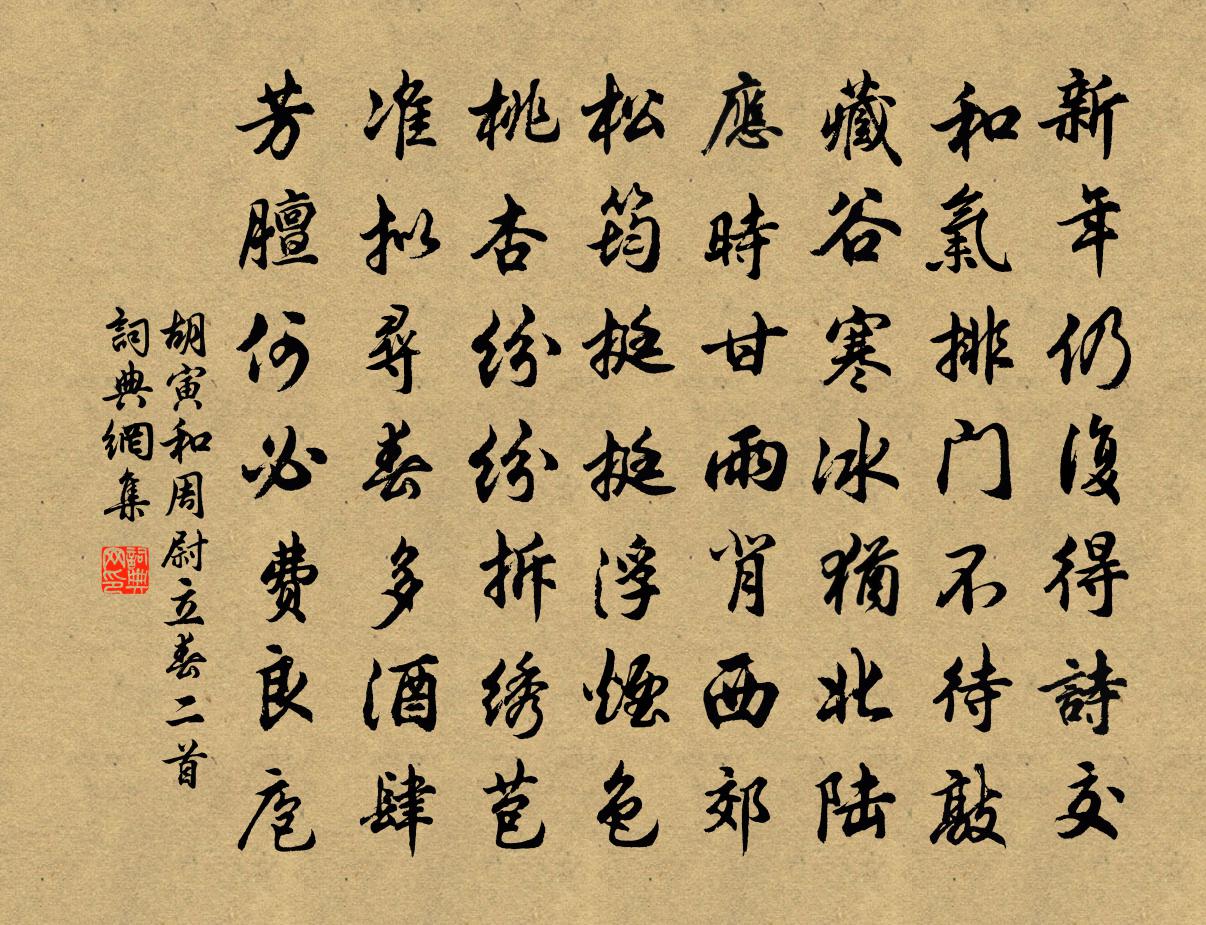 新年仍復得詩交
和氣排门不待敲
藏谷寒冰猶北陆
應時甘雨肖西郊
松筠挺挺浮煙色
桃杏纷纷拆绣苞
准拟尋春多酒肆
芳膻何必費良庖
胡寅和周尉立春二首
詞典網集
詞典网印